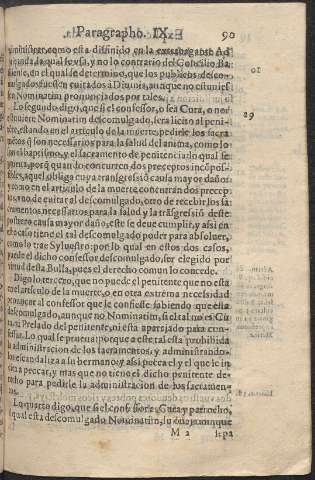 Paragrapho. IX. 90
ministrar, como esta difinido en la extrauagante Ad
euitanda, la qual se vsa, y no lo contrario del Concilio Ba
siliense, en el qual se determino, que los publicos desco-
mulgados fuessen euitados à Diuinis, aunque no estuuies
sen Nominatim pronunciados por tales.
20
Lo segundo, digo, que si el confessor, o sea Cura, o no,
estuuiere Nominatim descomulgado, sera licito al peniten
29
te, estando en el articulo de la muerte, pedirle los sacra
mentos q̃ son necessarios para la salud del anima, como lo
es el baptismo, y el sacramento de penitencia: lo qual se
prueua, porq̃ quando concurren dos preceptos incõpossi-
bles, aquel obliga cuya transgressiõ causa mayor daño:
y como en el articulo de la muerte concurran dos precep
tos, vno de euitar al descomulgado, otro de recebir los sa-
cramentos necessarios para la salud y la trãsgressiõ deste
postrero causa mayor daño, este se deue cumplir, y assi en
este caso tiene el tal descomulgado poder para absoluer,
como lo trae Syluestro: por lo qual en estos dos casos,
puede el dicho confessor descomulgado, ser elegido por
virtud desta Bulla, pues el derecho comun lo concede.
Digo lo tercero, que no puede el penitente que no esta
en el articulo de la muerte, o en otra extrema necessidad
prouocar al confessor que le confiesse sabiendo que està
descomulgado, aunque no Nominatim, si el tal no es Cu
ra, ni Prelado del penitente, ni està aparejado para con-
fessar. Lo qual se prueua: porque a este tal esta prohibida
la administracion de los sacramentos, y administrando-
los escandaliza a su hermano: y assi pecca el y el que le in
cita a peccar, y mas que no tiene el dicho penitente de-
recho para pedirle la administracion de los sacramen-
tos.
Lo quarto digo, que si el confessor es Cura y parrocho,
el qual esta descomulgado Nominatim,
M 2